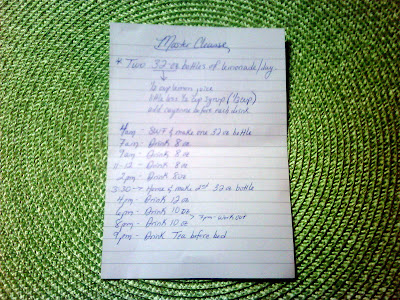 Master Cleanse
* Two 32 oz bottles of lemonade/day.
½ cup lemon juice
little less ½ cup syrup (⅓ cup)
add cayenne before each drink
4am - SWF & make one 32 oz bottle
7am - Drink 8 oz
9am - Drink 8 oz
11-12 - Drink 8 oz
2pm - Drink 8oz
3:30 → Home & make 2nd 32 oz bottle
4pm - Drink 12 oz
6pm - Drink 10 oz
7pm - work out
8pm - Drink 10 oz
9pm - Drink Tea before bed